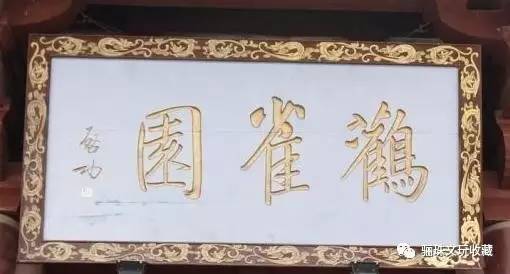 鸛雀園
启功
骊珠文玩收藏